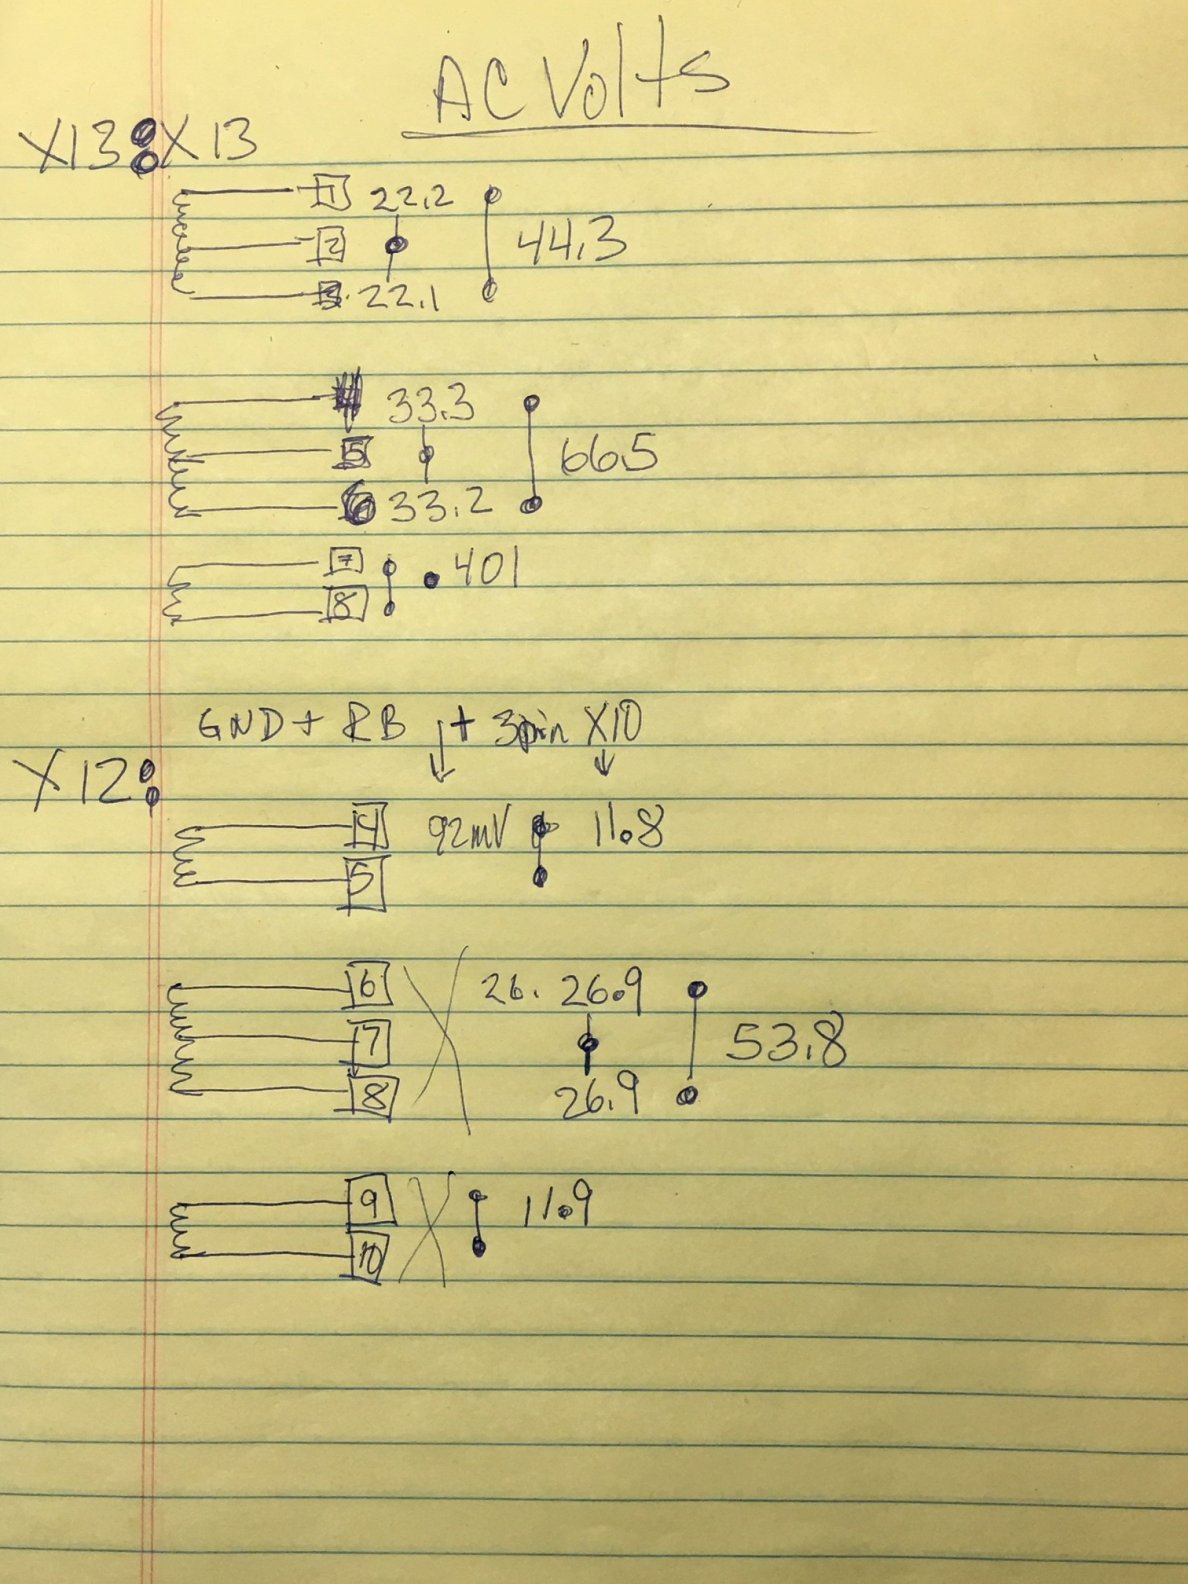 AC Volts
X13: X13
1 22.2
2 44.3
3 22.1
4 33.3
5 66.5
6 33.2
7 .401
8
GND + RB + 3pin X10
X12:
4 92mV 11.8
5
6 X 26. 26.9
7 53.8
8 26.9
9 X 11.9
10